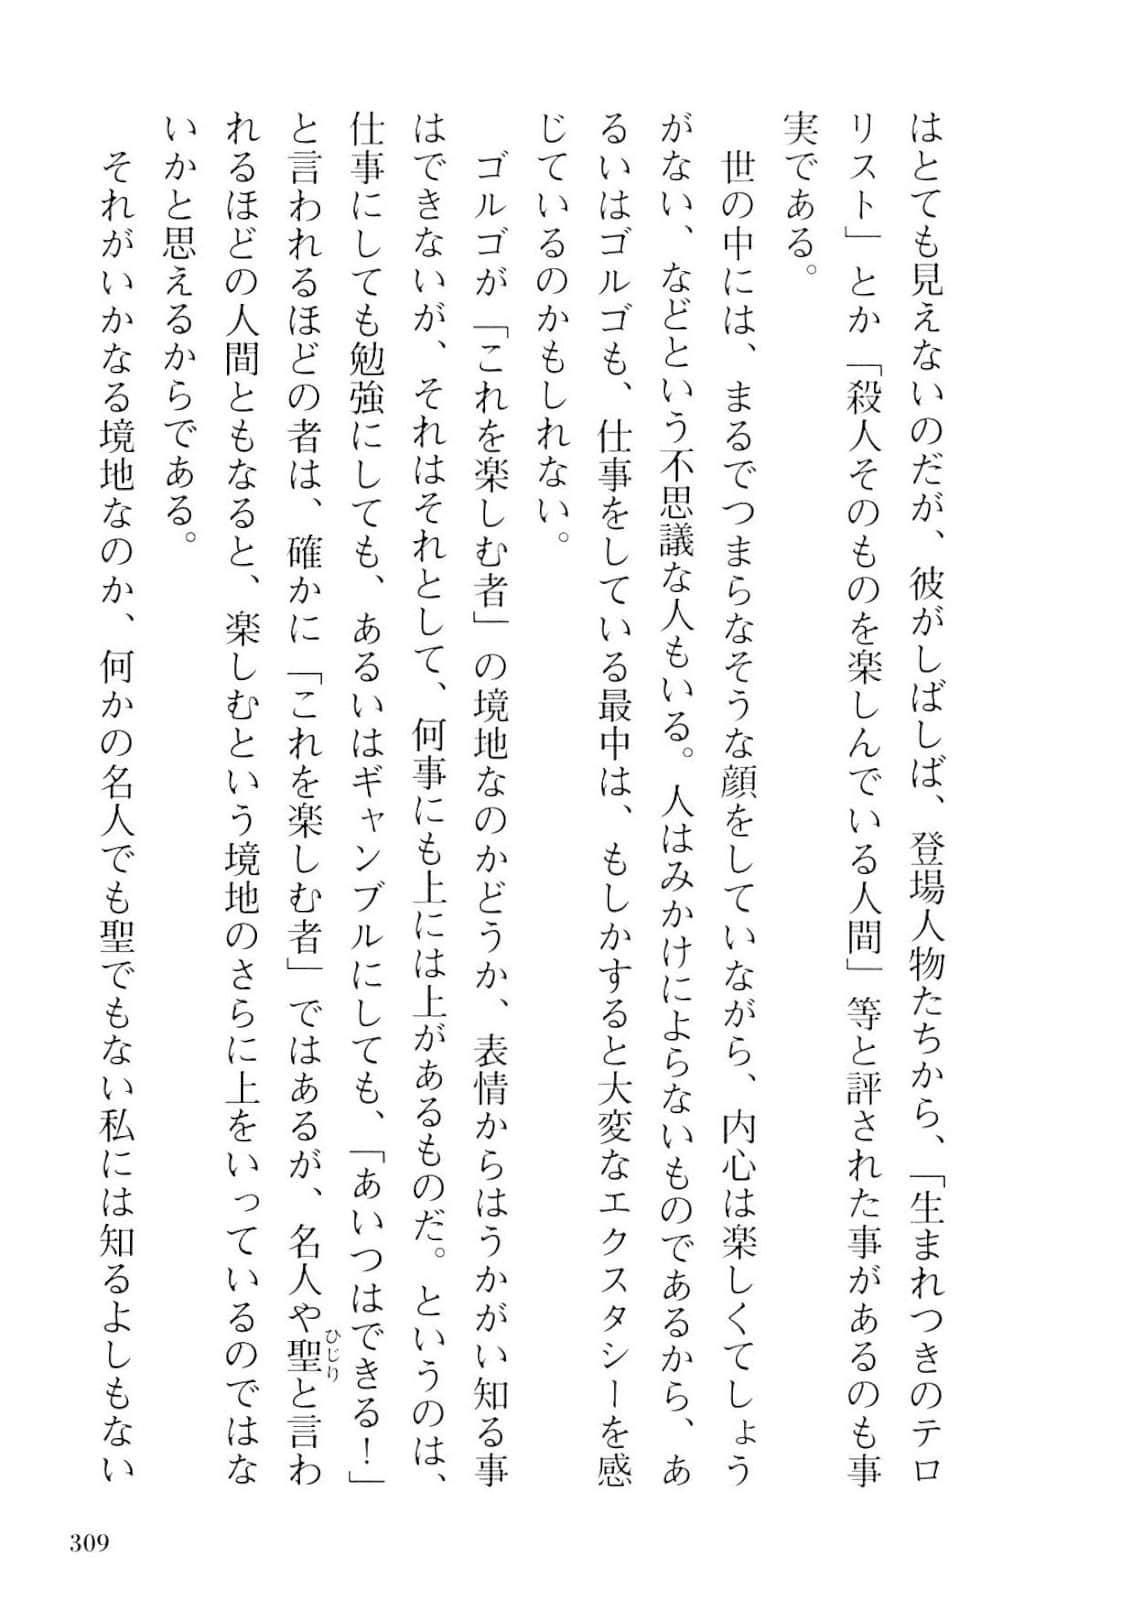 はとても見えないのだが、彼がしばしば、登場人物たちから、「生まれつきのテロ
リスト」とか「殺人そのものを楽しんでいる人間」等と評された事があるのも事
実である。
世の中には、まるでつまらなそうな顔をしていながら、内心は楽しくてしょう
がない、などという不思議な人もいる。人はみかけによらないものであるから、あ
るいはゴルゴも、仕事をしている最中は、もしかすると大変なエクスタシーを感
じているのかもしれない。
ゴルゴが「これを楽しむ者」の境地なのかどうか、表情からはうかがい知る事
はできないが、それはそれとして、何事にも上には上があるものだ。というのは、
仕事にしても勉強にしても、あるいはギャンブルにしても、「あいつはできる！」
と言われるほどの者は、確かに「これを楽しむ者」ではあるが、名人や聖と言わ
ひじり
れるほどの人間ともなると、楽しむという境地のさらに上をいっているのではな
いかと思えるからである。
それがいかなる境地なのか、何かの名人でも聖でもない私には知るよしもない
309